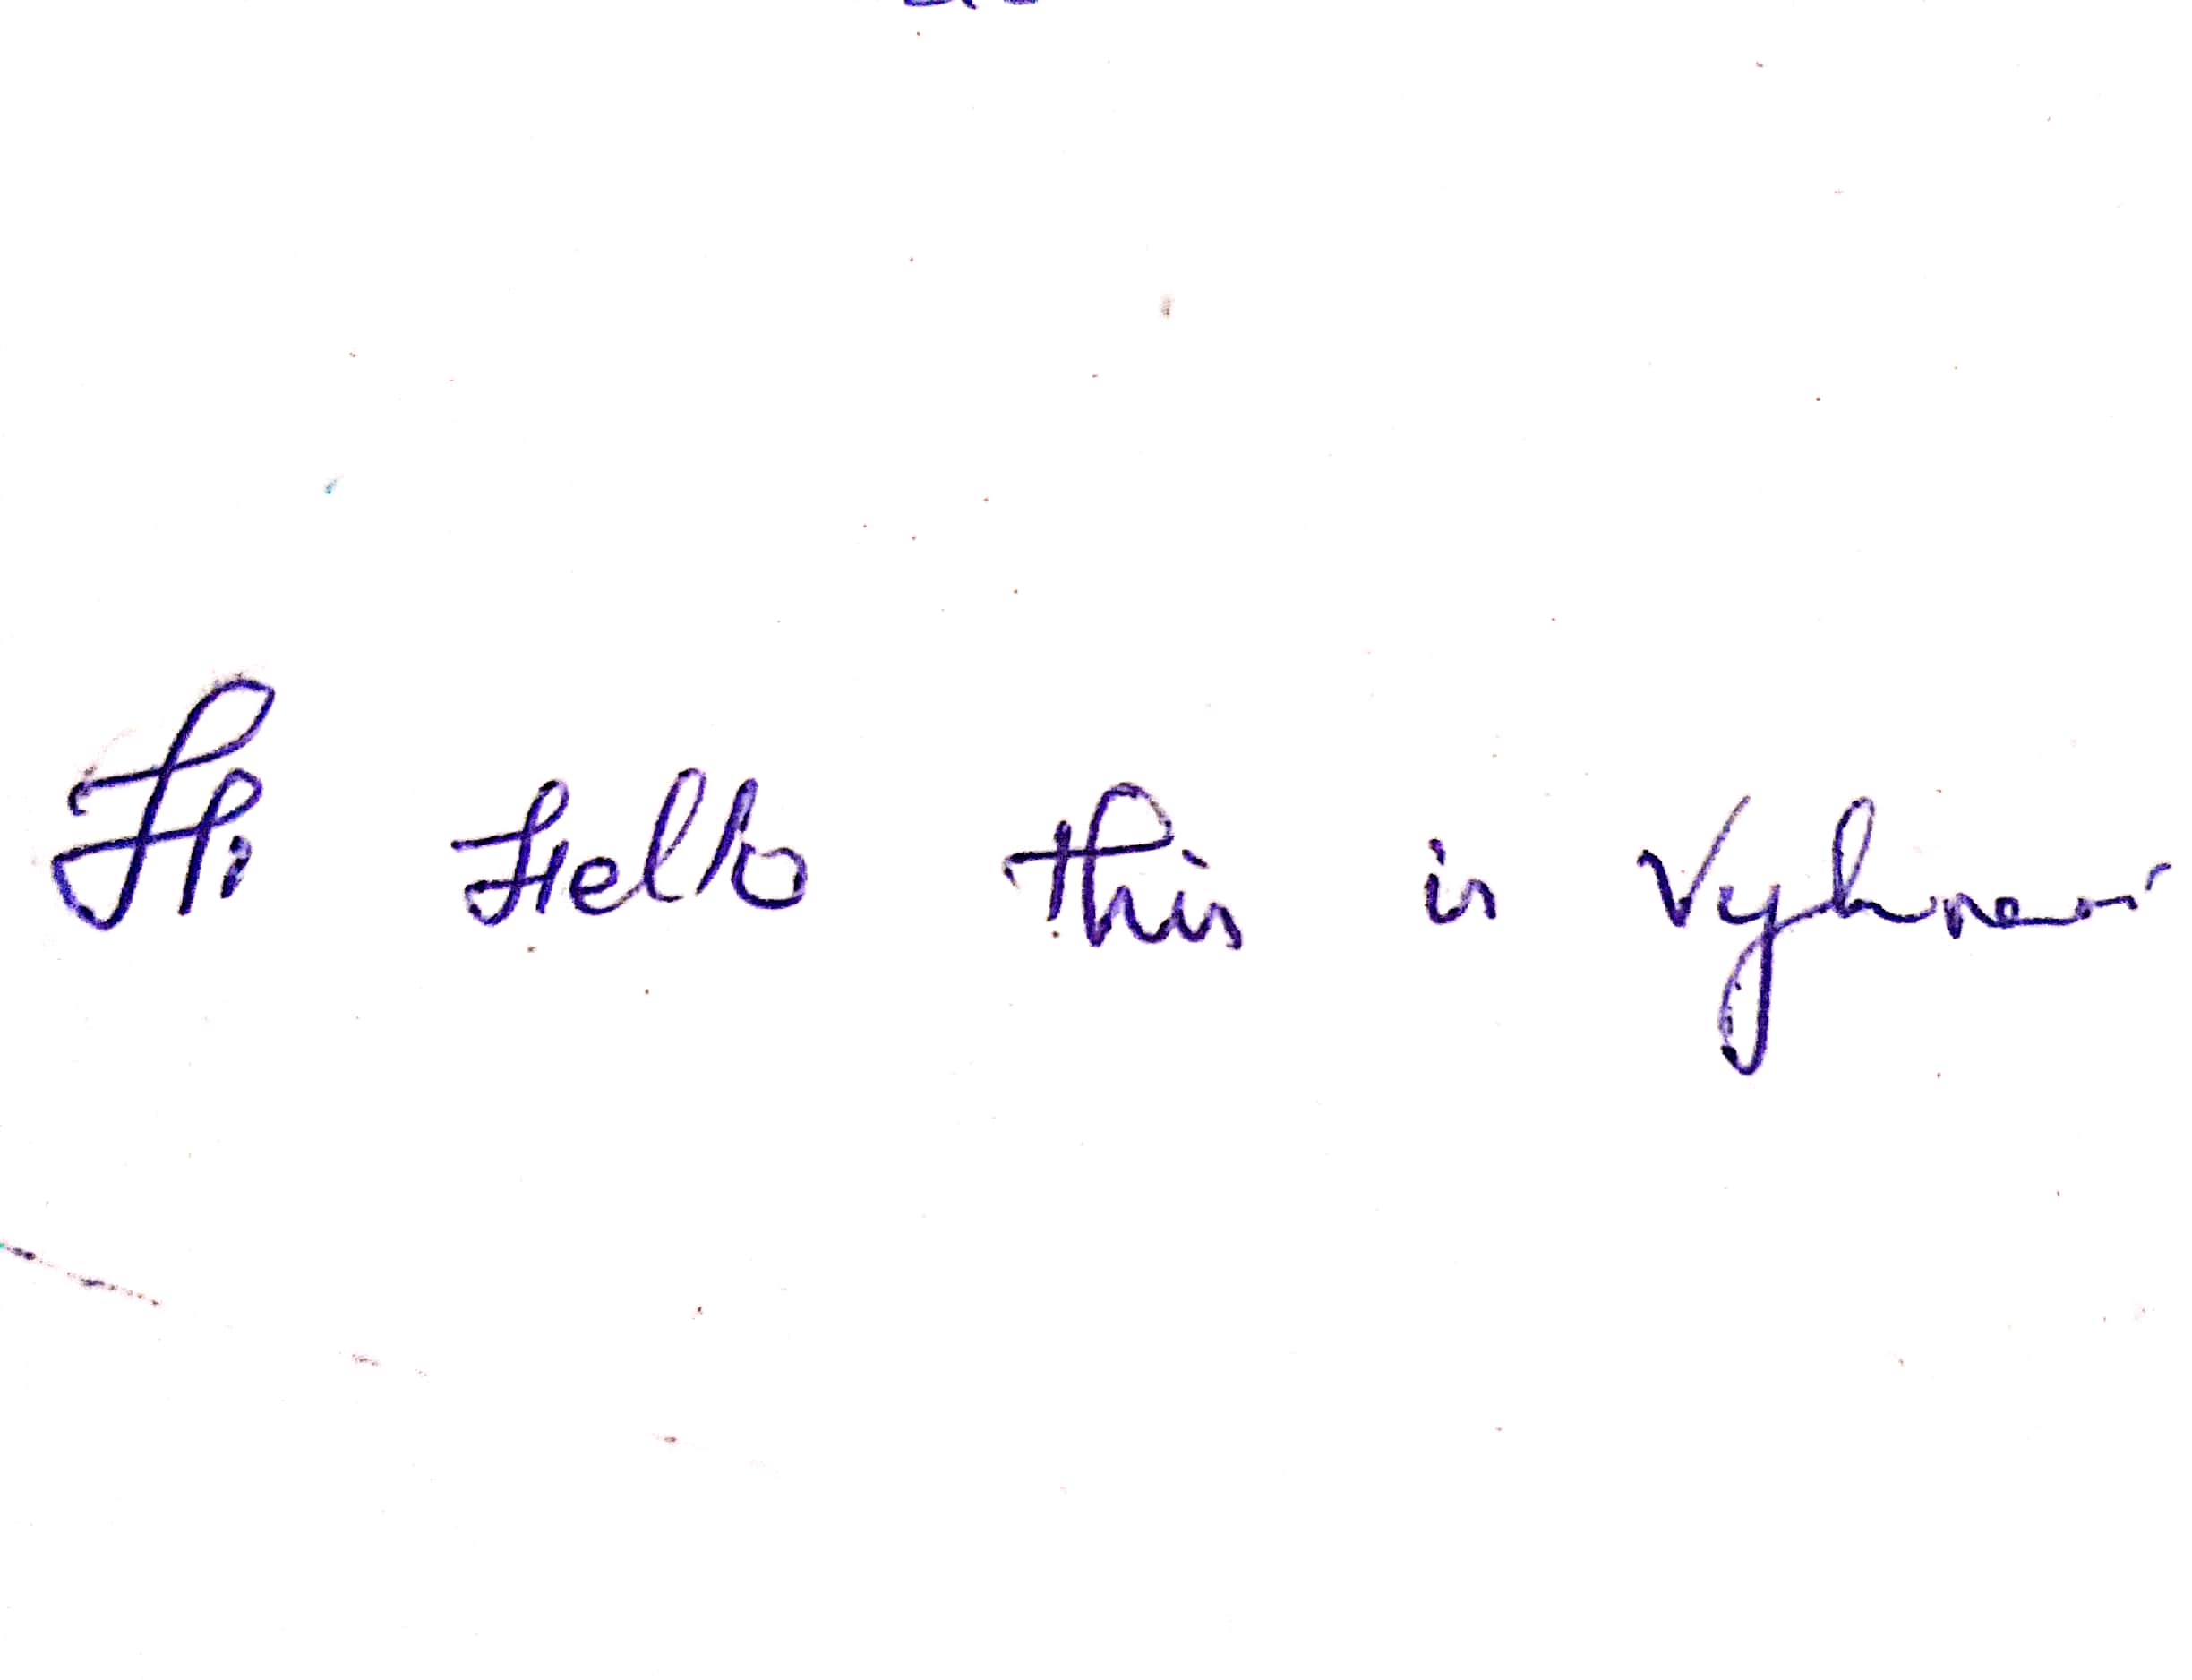 Hi Hello this is Vyshnavi